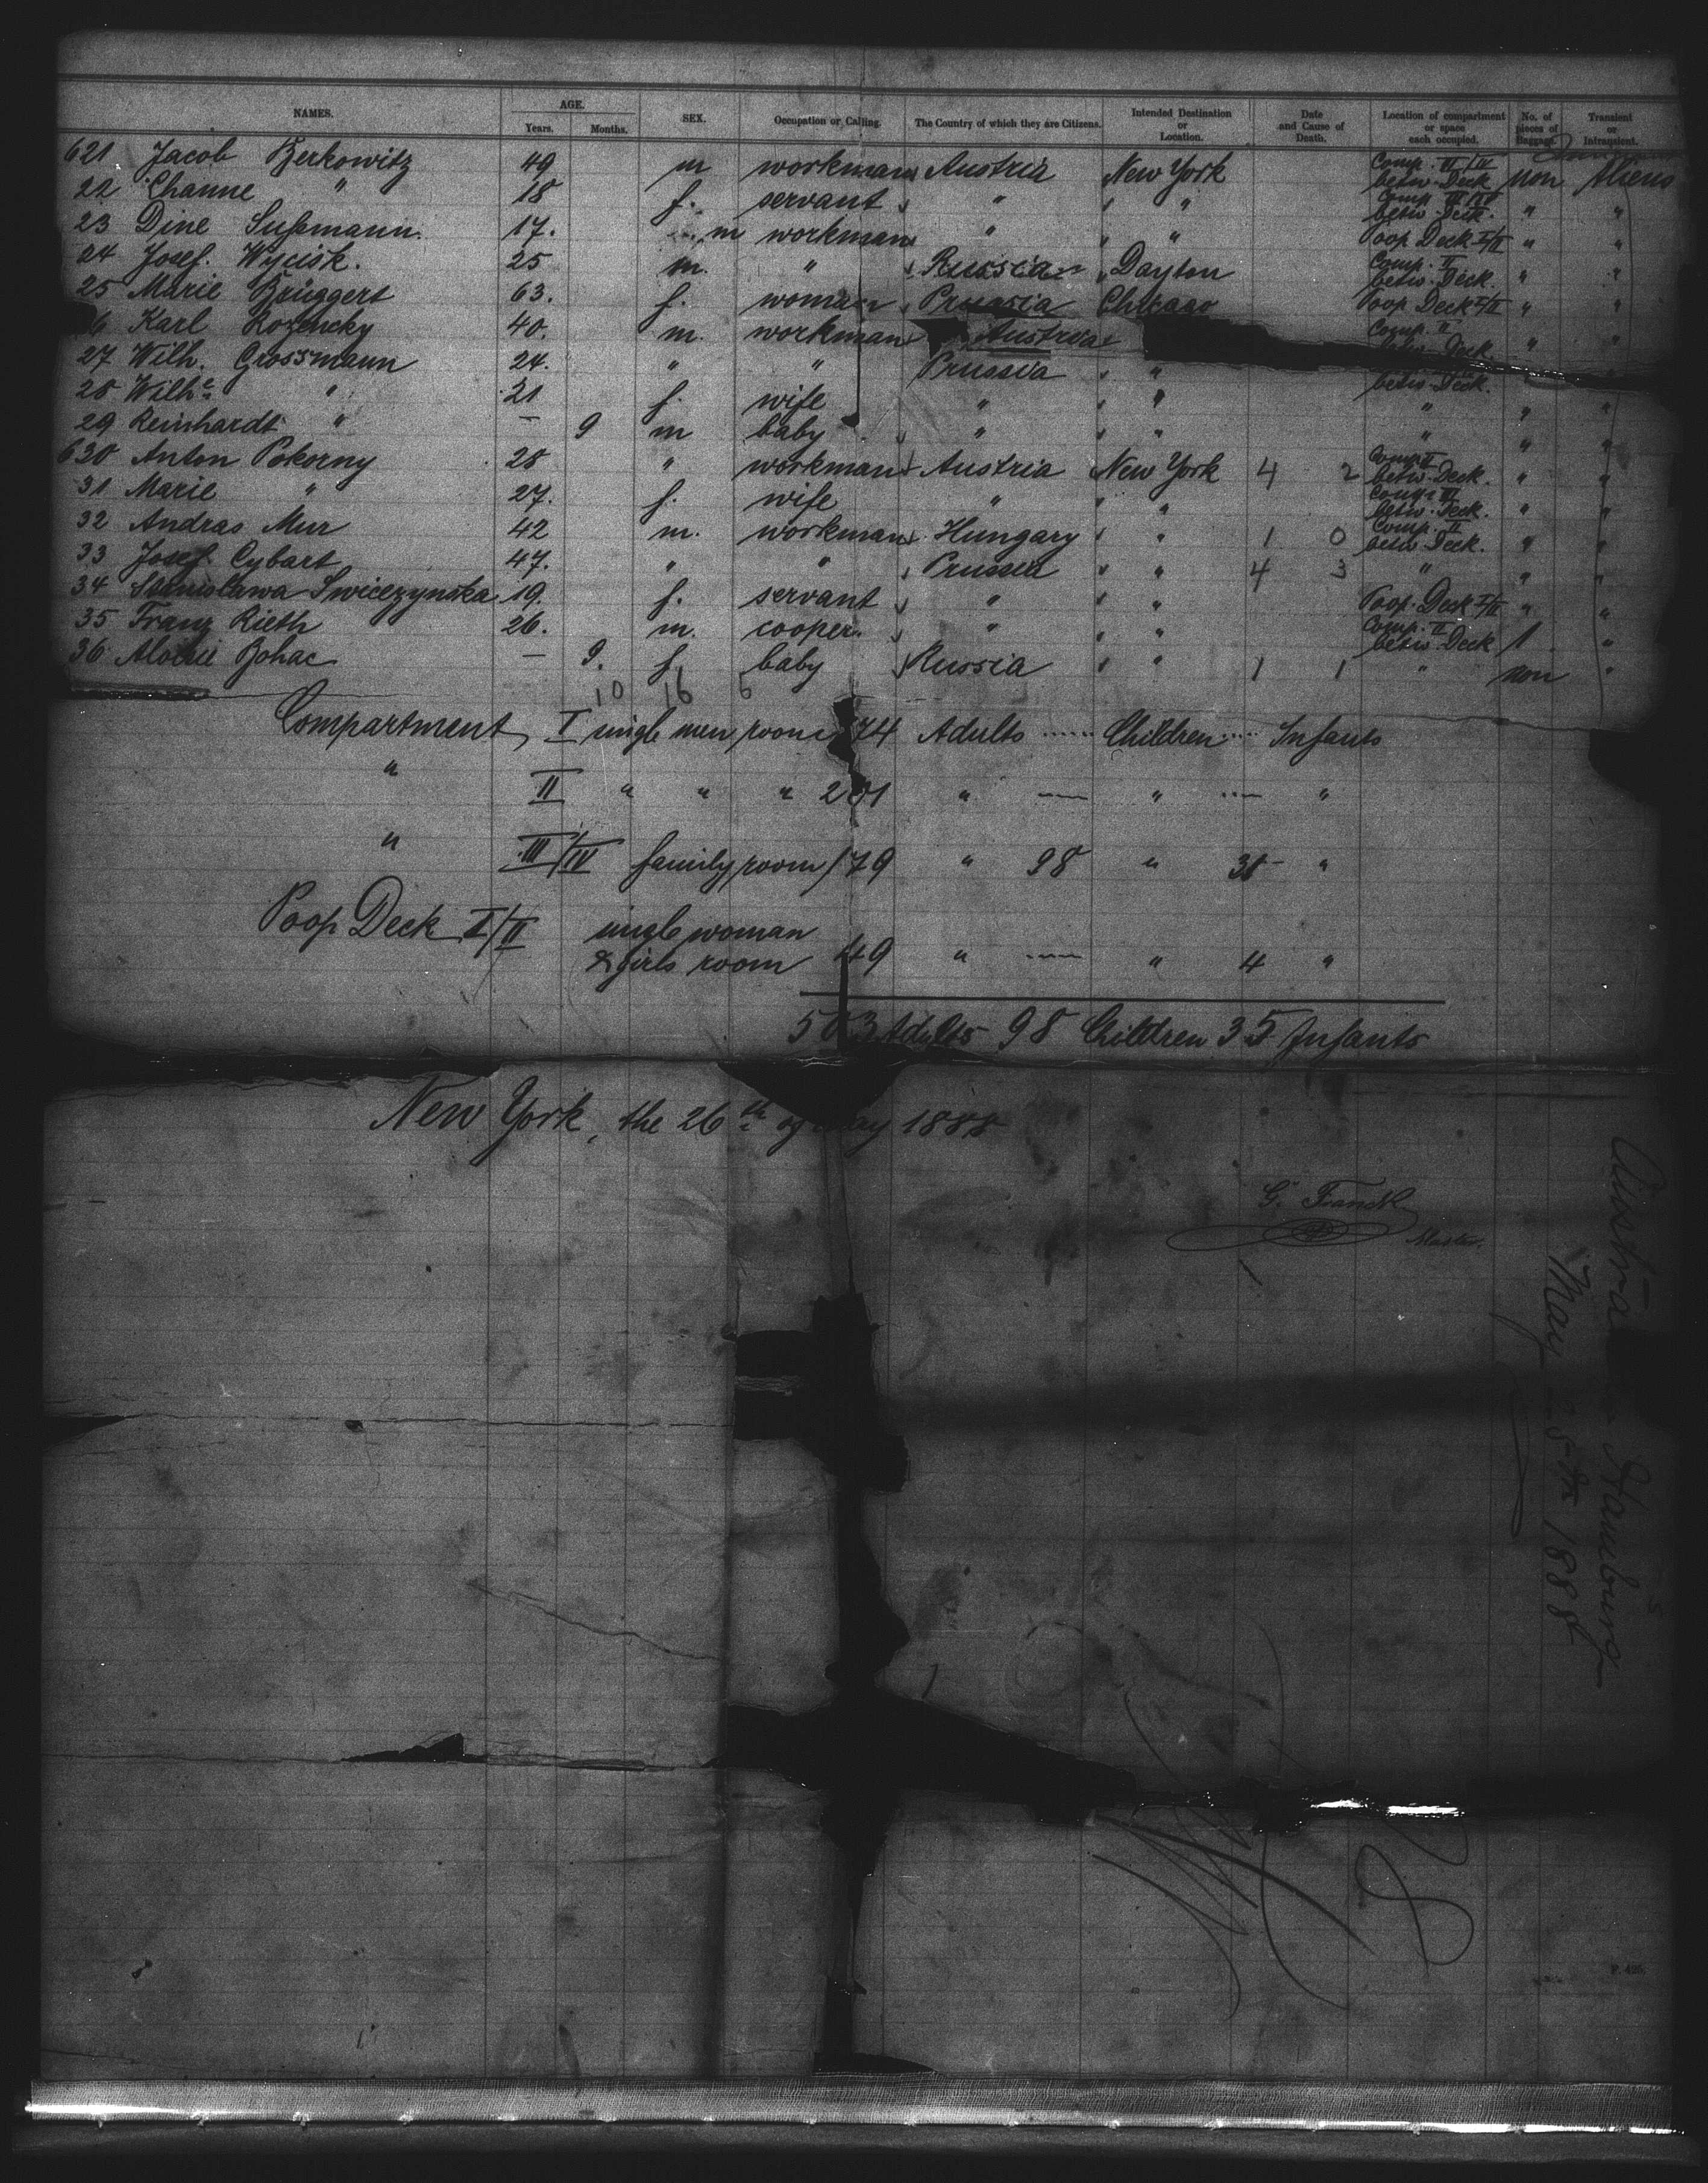 NAMES. AGE. Years. Months. SEX. Occupation or Calling. The Country of which they are Citizens. Intended Destination or Location. Date and Cause of Death. Location of compartment or space each occupied. No. of pieces of Baggage. Transient or Intransient.
621 Jacob Berkowitz 49 m workman Austria New York Comp. III/IV betw. Deck non Aliens
22 Channe " 18 f. servant " " Comp III/IV betw. Deck. " "
23 Dine Sußmann. 17. m workman " " Poop Deck I/II " "
24 Josef. Wycisk. 25 m. " Russia Dayton Comp. II betw. Deck. " "
25 Marie Brüggert 63. f. woman Prussia Chicago Poop Deck I/II " "
6 Karl Rozencky 40. m. workman Austria Comp. II betw. Deck " "
27 Wilh. Grossmann 24. " " Prussia " betw. Deck. "
28 Wilhe " 21 f. wife " " " " "
29 Reinhardt " — 9 m baby " " " " "
630 Anton Pokorny 28 " workman Austria New York 4 2 Comp II betw. Deck. " "
31 Marie " 27. f. wife " " Comp. III betw. Deck. " "
32 Andras Mur 42 m. workman Hungary " 1 0 Comp. II betw. Deck. " "
33 Josef. Cybart 47. " " Prussia " 4 3 " " "
34 Stanislawa Swiczynska 19. f. servant " " Poop. Deck I/II " "
35 Franz Rieth 26. m. cooper. " " Comp. II betw. Deck 1 "
36 Bohac — 9. f baby Russia " 1 1 " non "
10 16 6
Compartment I singl men room 74 Adults ...... Children .... Infants
" II " " " 201 " — " — "
" III/IV family room 179 " 98 " 31 "
Poop Deck I/II singl woman
& girls room 49 " — " 4 "
503 Adults 98 Children 35 Infants
New York, the 26th of May 1888
Master.
Austria Hamburg
May 1888
P. 425.